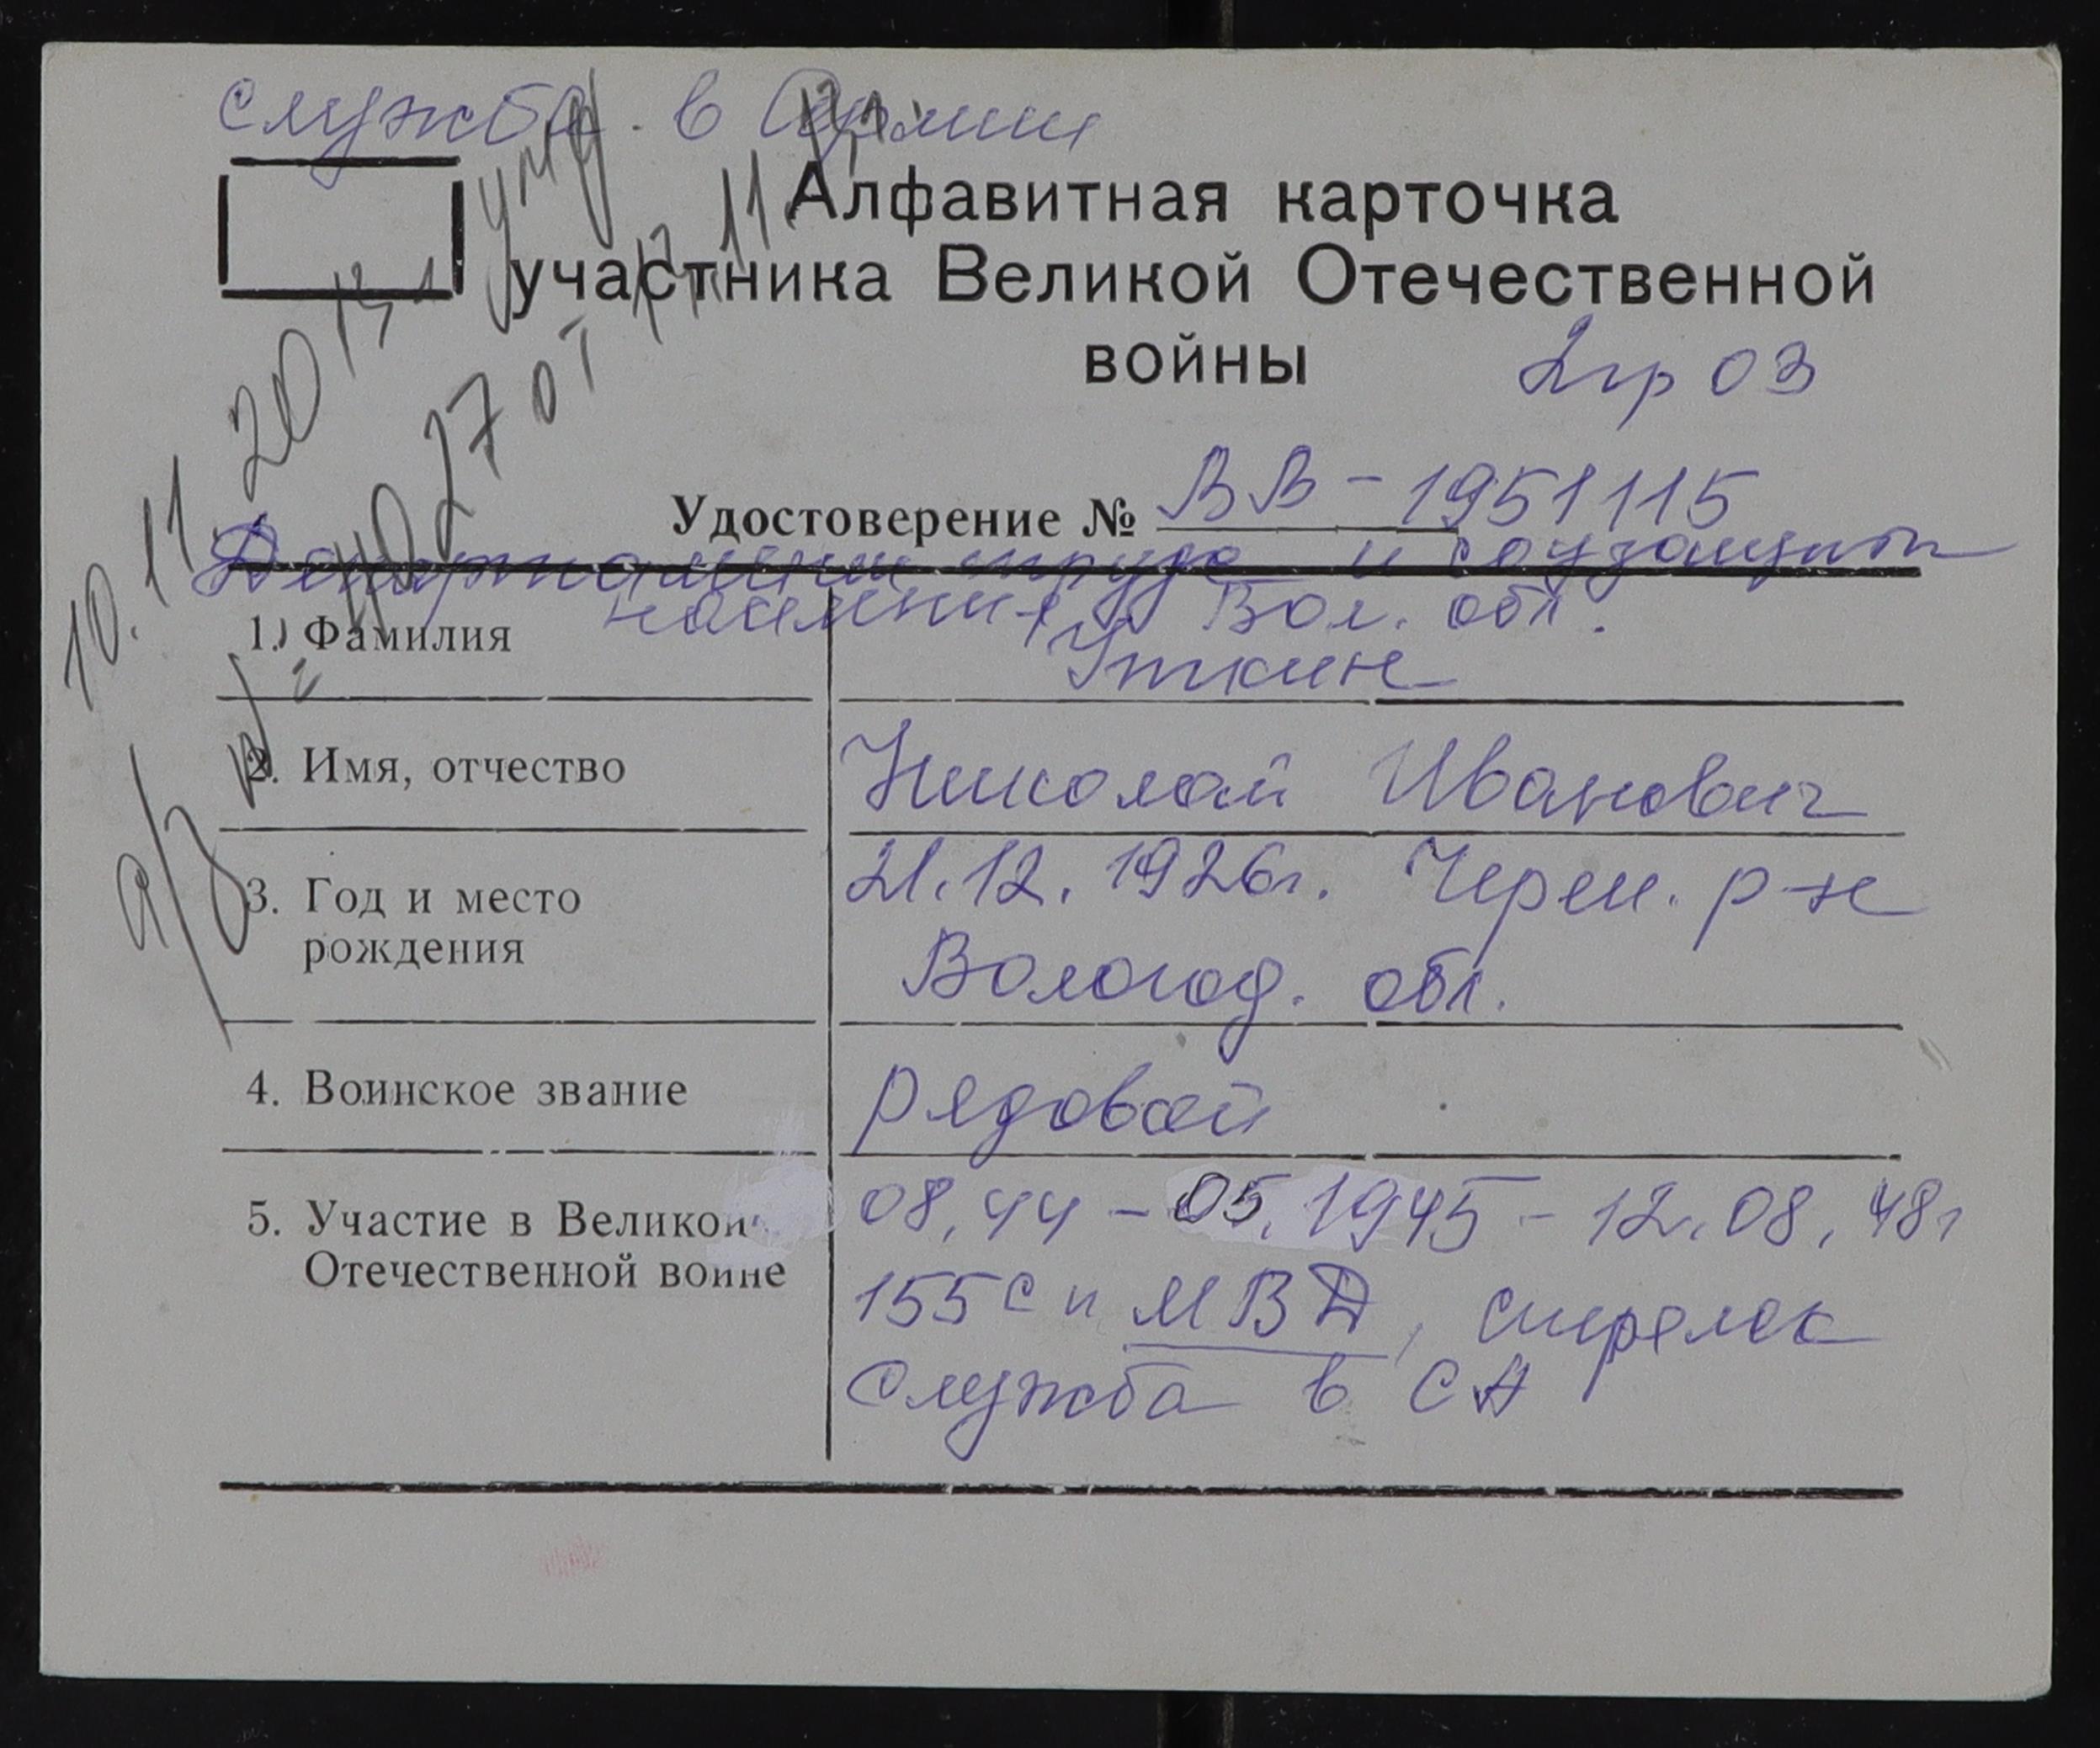 служба в Армии
Алфавитная карточка
участника Великой Отечественной
войны
2гр 03
умер
10.11 2013г
27 от 12.11.
Удостоверение № ВВ – 1951115
Департамент труда и соцзащиты
населения Вол. обл.
1. Фамилия Уткин
2. Имя, отчество Николай Иванович
3. Год и место 21.12.1926г. Череп. р-н
рождения Вологод. обл.
4. Воинское звание рядовой
5. Участие в Великой 08.44 – 05.1945 – 12.08.48г
Отечественной войне 155 сп МВД, стрелок
служба в СА